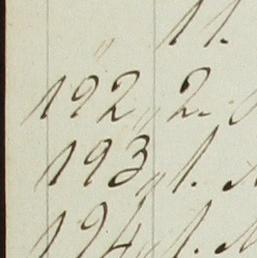 11.
192 " 2.
193 " 1.
194 " 1.